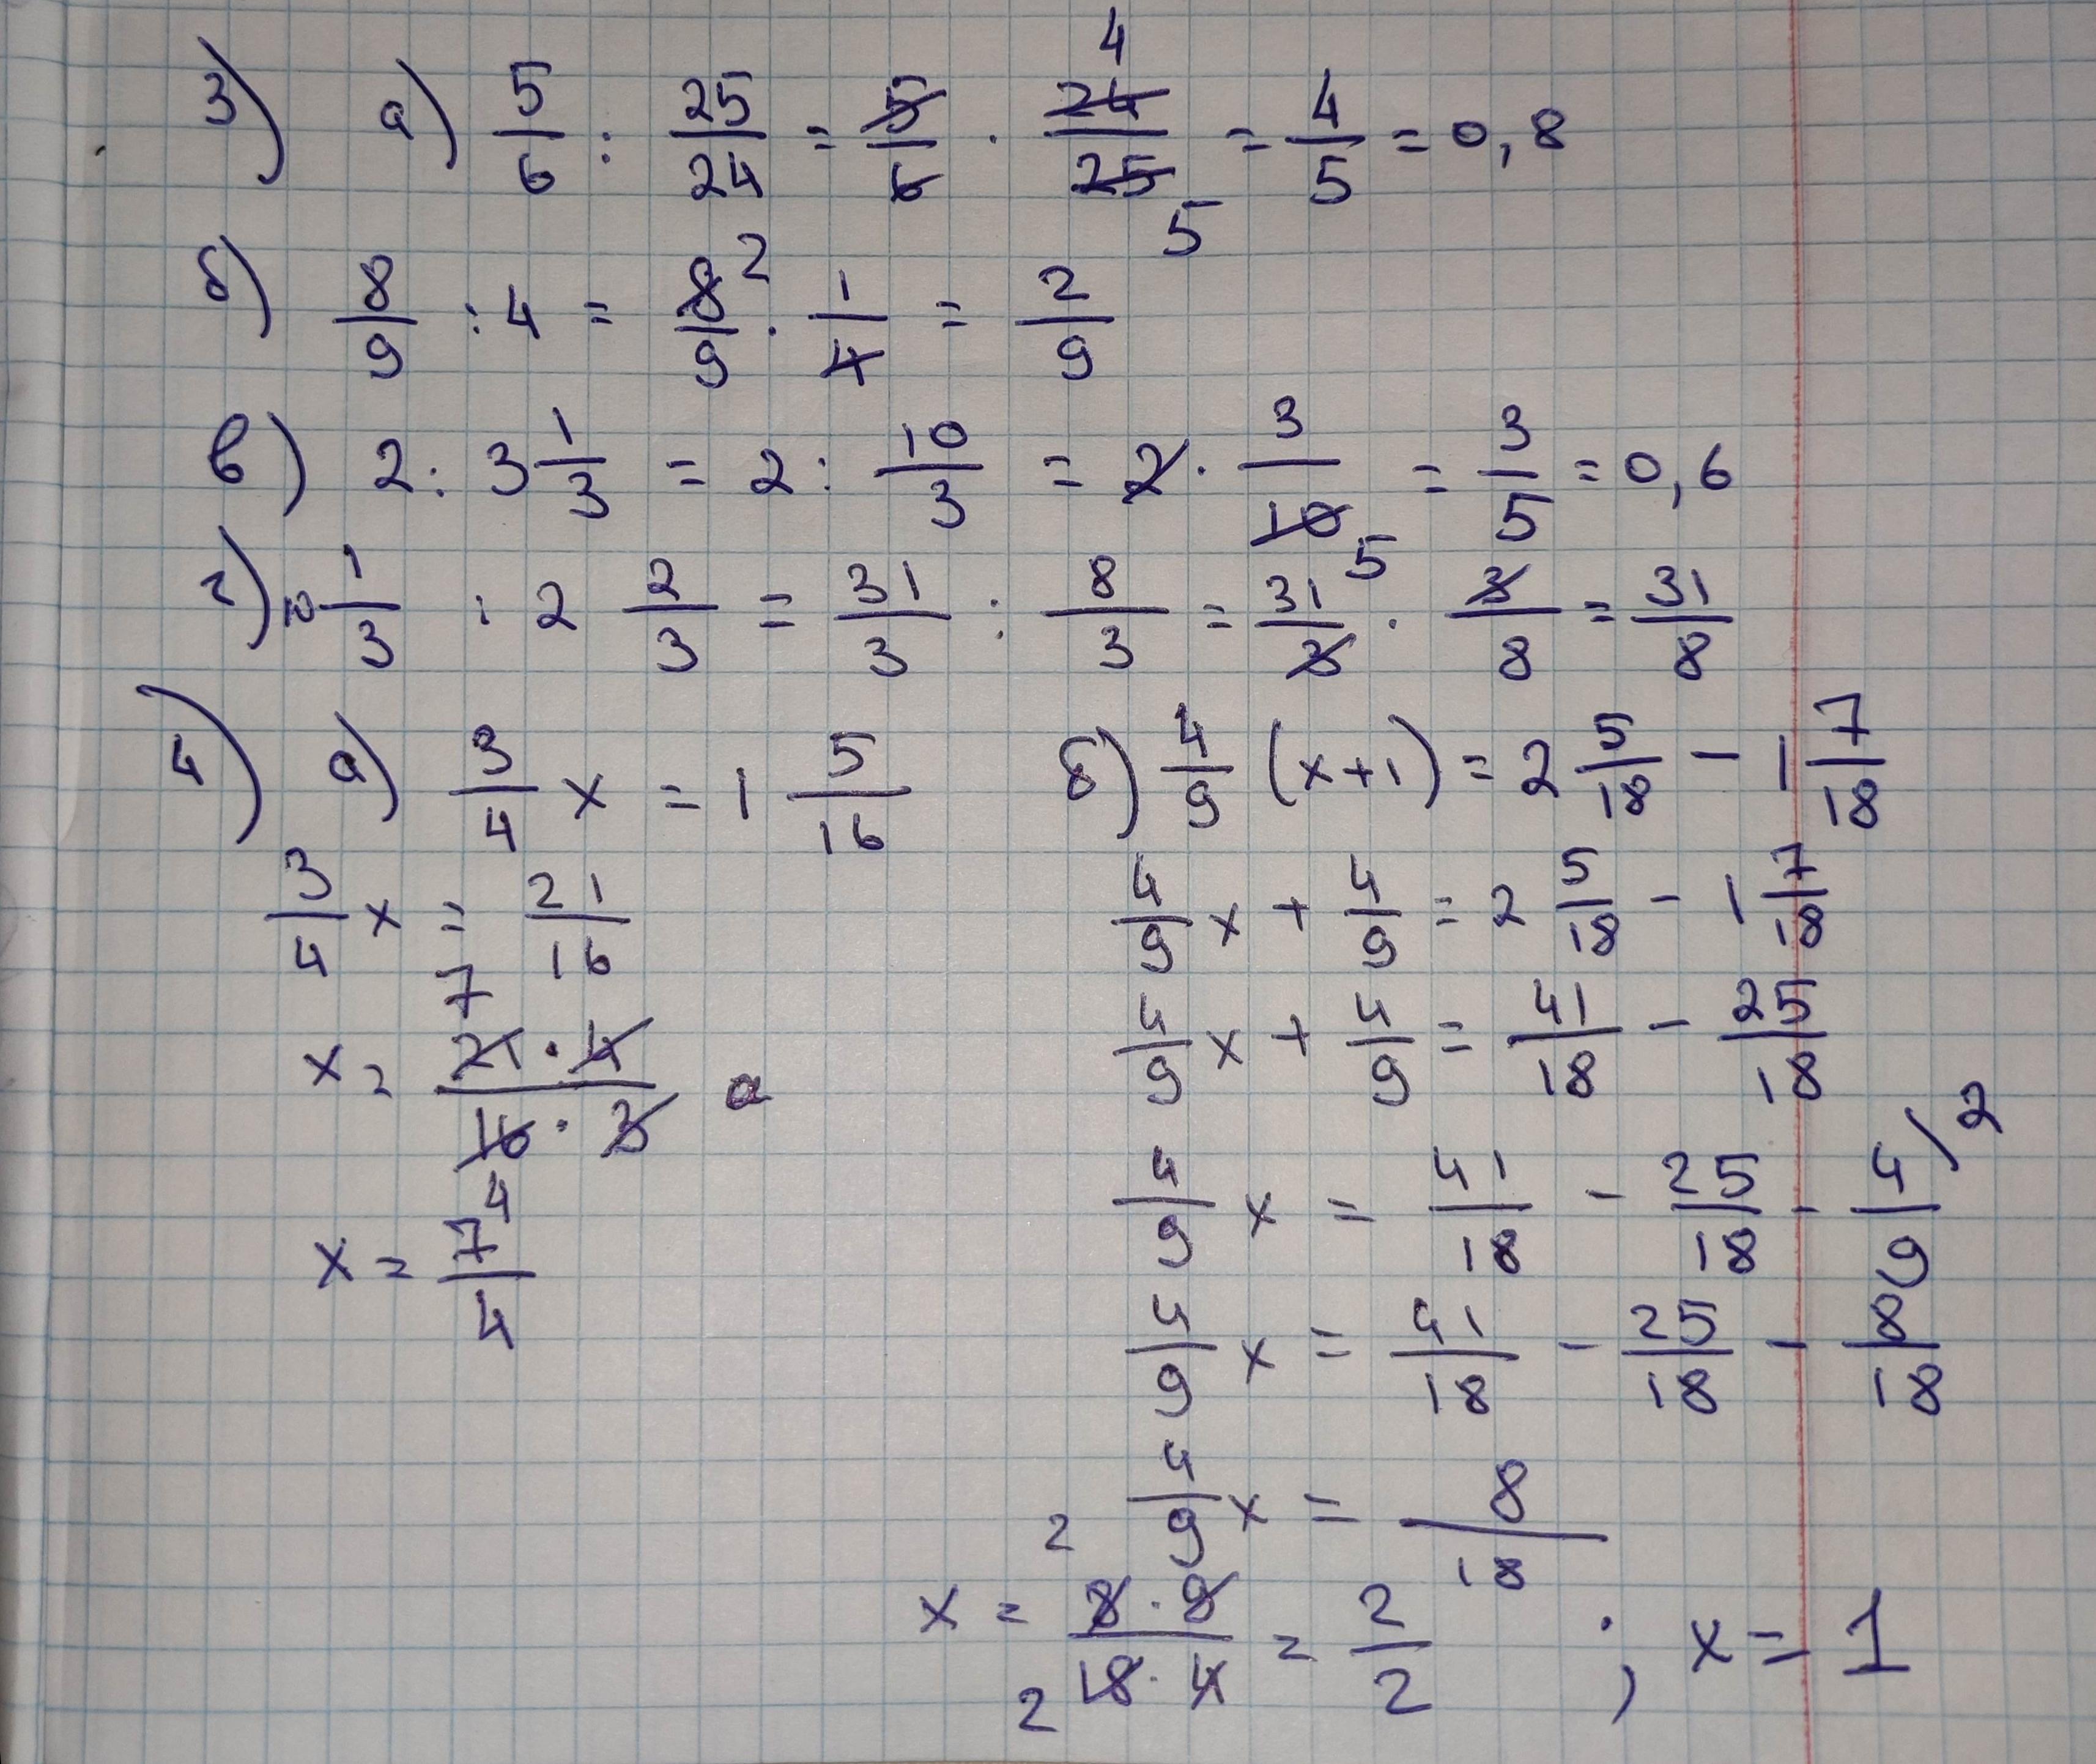 3) а) 5/6 : 25/24 = 5/6 · 24/25 = 4/5 = 0,8
4
5
б) 8/9 : 4 = 8/9 · 1/4 = 2/9
2
в) 2 : 3 1/3 = 2 : 10/3 = 2 · 3/10 = 3/5 = 0,6
5
г) 10 1/3 : 2 2/3 = 31/3 : 8/3 = 31/3 · 3/8 = 31/8
4) а) 3/4 x = 1 5/16
3/4 x = 21/16
7
x = 21·4/16·3
4
x = 7/4
б) 4/9 (x+1) = 2 5/18 - 1 7/18
4/9 x + 4/9 = 2 5/18 - 1 7/18
4/9 x + 4/9 = 41/18 - 25/18
4/9 x = 41/18 - 25/18 - 4/9 /2
4/9 x = 41/18 - 25/18 - 8/18
4/9 x = 8/18
2
x = 8·9/18·4 = 2/2 ; x = 1
2